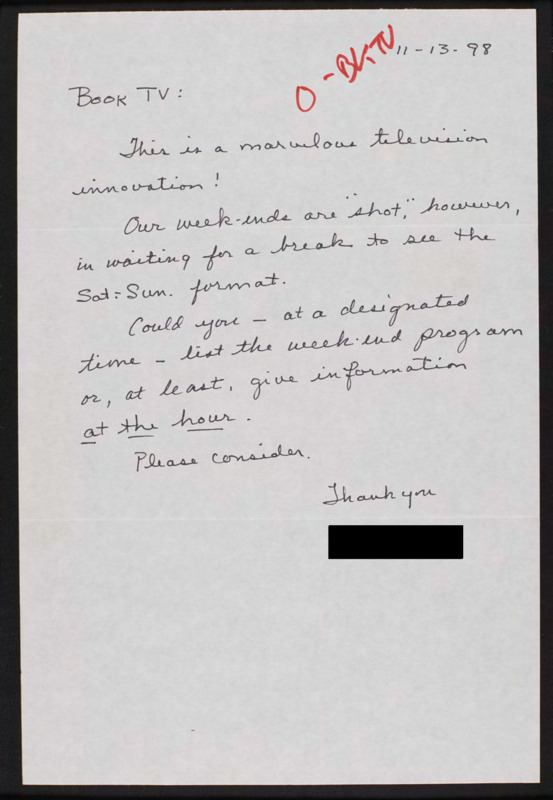 O-BKTV 11-13-98
Book TV:
This is a marvelous television
innovation!
Our week-ends are "shot," however,
in waiting for a break to see the
Sat-Sun. format.
Could you – at a designated
time – list the week-end program
or, at least, give information
at the hour.
Please consider.
Thank you